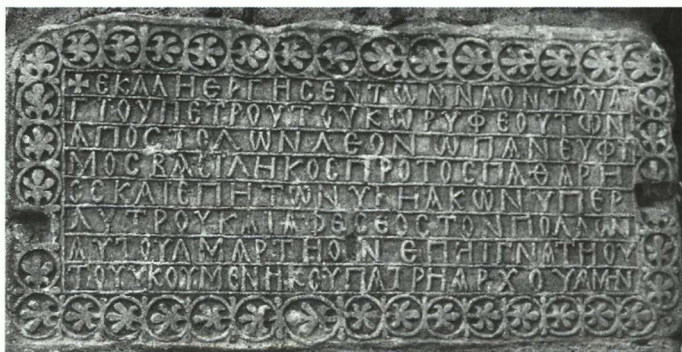 +ΕΚΑΛΗΕΡΓΗΣΕΝΤΩΝΝΑΟΝΤΟΥΑ
ΓΙΟΥΠΕΤΡΟΥΤΟΥΚΩΡΥΦΕΟΥΤΩΝ
ΑΠΟΣΤΟΛΩΝΛΕΟΝΩΠΑΝΕΥΦΙ
ΜΟΣΒΑΣΙΛΗΚΟΣΠΡΟΤΟΣΠΑΘΑΡΗ
ΟΣΚΑΙΕΠΗΤΩΝΥΚΗΑΚΩΝΥΠΕΡ
ΛΥΤΡΟΥΚΑΙΑΦΕΣΕΟΣΤΟΝΠΟΛΛΩΝ
ΑΥΤΟΥΑΜΑΡΤΗΟΝΕΠΗΙΓΝΑΤΗΟΥ
ΤΟΥΥΚΟΥΜΕΝΗΚΟΥΠΑΤΡΗΑΡΧΟΥΑΜΗΝ